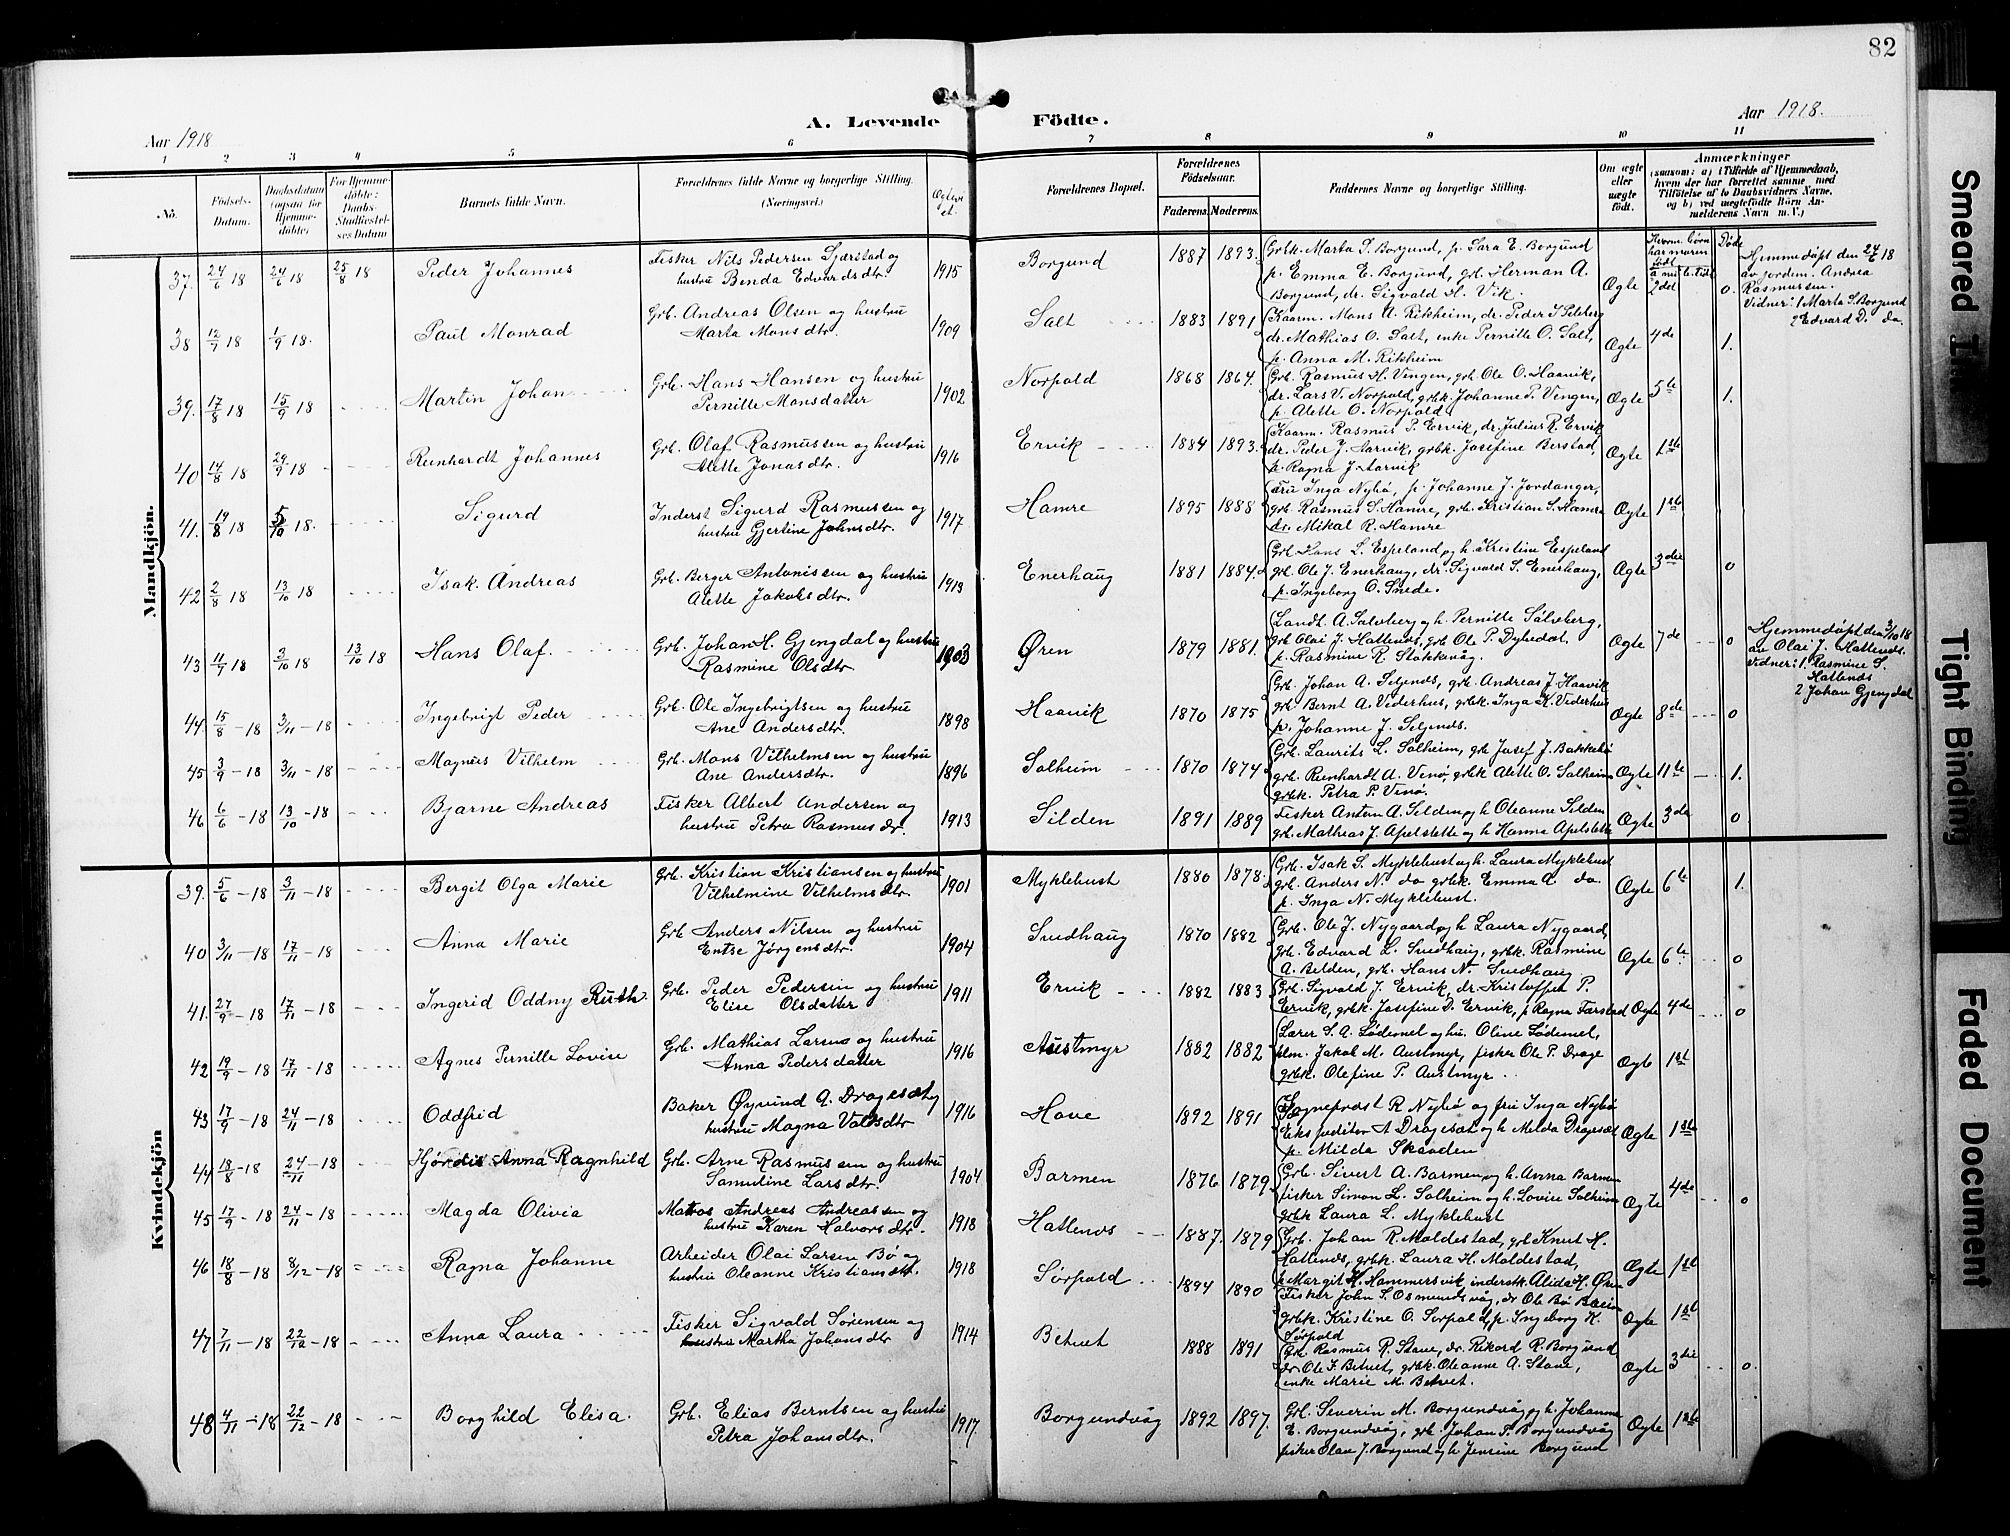 82
A. Levende Födte.
Aar 1918
Aar 1918.
1 2 3 4 5 6 7 8 9 10 11
No.
Födsels-Datum.
Daabsdatum (ogsaa for Hjemme-döbte)
For Hjemme-döbte: Daabs-Stadfæstel-ses Datum
Barnets fulde Navn.
Forældrenes fulde Navne og borgerlige Stilling.
(Næringsvei.)
Forældrenes Bopæl.
Forældrenes Födselsaar.
Faderens. Moderens.
Faddernes Navne og borgerlige Stilling.
Om ægte eller uægte födt.
Anmærkninger
(saasom: a) i Tilfælde af Hjemmedaab,
hvem der har forrettet samme med
Tilföielse af to Daabsvidners Navne,
og b) ved uægtefödte Börn An-
melderens Navn m. V.)
Mandkjön.
37. 24/6 18 24/6 18 25/8 18 Peder Johannes
Fisker Nils Pedersen Sjærstad og
hustru Benda Edvardsdtr. 1915
Borgund 1887 1893.
Grbk. Marta S. Borgund, p. Sara E. Borgund
p. Emma E. Borgund, grb. Herman A.
Borgund, dr. Sigvald H. Vik.
Ægte 2det 0.
Hjemmedøpt den 24/6 18
av jordem. Andrea
Rasmussen.
Vidner: 1 Marta S. Borgund
2 Edvard D. do.
38 12/7 18 1/9 18. Paul Monrad
Grb. Andreas Olsen og hustru
Marta Monsdtr. 1909
Salt 1883 1891
Kaarm. Mons A. Rikheim, dr. Peder I. Selberg
dr. Mathias O. Salt, enke Pernille O. Salt,
p. Anna M. Rikheim
Ægte 4de 1.
39. 17/8 18 15/9 18 Martin Johan
Grb. Hans Hansen og hustru
Pernille Monsdatter 1902
Norpold 1868 1864.
Grb. Rasmus H. Vengen, grb. Ole O. Haavik,
dr. Lars V. Norpold, grbk. Johanne P. Vengen,
p. Alette O. Norpold.
Ægte 5te 1.
40 14/8 18 29/9 18 Reinhardt Johannes
Grb. Olaf Rasmussen og hustru
Alette Jonasdtr. 1916
Ervik 1884 1893.
Kaarm. Rasmus P. Ervik, dr. Julius R. Ervik
dr. Peder J. Aarvik, grbk. Josefine Berstad,
p. Ragna J. Aarvik
Ægte 1ste
41. 19/8 18 5/10 18. Sigurd
Inderst Sigurd Rasmussen og
hustru Gjertine Johnsdtr. 1917
Hamre 1895 1888
Fru Inga Nybø, p. Johanne J. Jordanger,
grb. Rasmus S. Hamre, grb. Kristian S. Hamre
dr. Mikal R. Hamre
Ægte 1ste
42 2/8 18 13/10 18 Isak Andreas
Grb. Berger Antonissen og hustru
Alette Jakobsdtr. 1913
Enerhaug 1881 1884.
Grb. Hans L. Espeland og h. Kristine Espeland
grb. Ole J. Enerhaug, dr. Sigvald S. Enerhaug,
p. Ingeborg O. Snede.
Ægte 3die 0
43 11/7 18 3/10 18 13/10 18 Hans Olaf
Grb. Johan H. Gjengdal og hustru
Rasmine Olsdtr. 1903
Øren 1879 1881.
Landh. A. Sølvberg og h. Pernille Sølvberg,
grb. Olai J. Hatlenes, grb. Ole P. Dybedal,
p. Rasmine R. Stokkevåg.
Ægte 7de 0
Hjemmedøpt den 3/10 18
av Olai J. Hatlenes.
Vidner: 1. Rasmine S.
Hatlenes
2 Johan Gjengdal
44. 15/8 - 18 3/11 - 18 Ingebrigt Peder
Grb. Ole Ingebrigtsen og hustru
Ane Andersdtr. 1898
Haavik 1870 1875
Grb. Johan A. Seljenes, grb. Andreas J. Haavik
grb. Bernt A. Viderhus, grbk. Inga K. Viderhus
p. Johanne J. Seljenes.
Ægte 8de 0
45 3/9 - 18 3/11 - 18 Magnus Vilhelm
Grb. Mons Vilhelmsen og hustru
Ane Andersdtr. 1896
Solheim 1870 1874
Grb. Laurits L. Solheim, grb. Josef J. Bakkebø
grb. Reinhardt A. Venø, grbk. Alette O. Solheim
grbk. Petra P. Venø.
Ægte 11te 1.
46 6/6 - 18 13/10 - 18 Bjarne Andreas
Fisker Albert Andersen og
hustru Petra Rasmusdr. 1913
Silden 1891 1889
Fisker Anton A. Silden og h. Oleanne Silden
grb. Mathias J. Apelsette og h. Hanna Apelsette
Ægte 3die 0
Kvindekjön
39. 5/6 - 18 3/11 - 18 Bergit Olga Marie
Grb. Kristian Kristiansen og hustru
Vilhelmine Vilhelmsdtr. 1901
Myklebust 1880 1878.
Grb. Isak S. Myklebust og h. Laura Myklebust
grb. Anders N. do grbk. Emma A do.
p. Inga N. Myklebust.
Ægte 6te 1.
40 3/11 - 18 17/11 - 18 Anna Marie
Grb Anders Nilsen og hustru
Entse Jørgensdtr. 1904
Smedhaug 1870 1882
Grb. Ole J. Nygaard og h. Laura Nygaard,
grb. Edvard L. Smedhaug, grbk. Rasmine
A. Belden, grb. Hans N. Smedhaug
Ægte 6te 0
41. 27/9 - 18 17/11 - 18 Ingerid Oddny Ruth
Grb. Peder Pedersen og hustru
Elise Olsdatter 1911
Ervik 1882 1883
Grb. Sigvald J. Ervik, dr. Kristoffer P.
Ervik, grbk. Josefine D. Ervik, p. Ragna Farstad
Ægte 4de 0
42 19/9 - 18 17/11 - 18 Agnes Pernille Lovise
Grb. Mathias Larsen og hustru
Anna Pedersdatter 1916
Austmyr 1882 1882
Lærer S. A. Lødemel og hu. Oline Lødemel,
plm. Jakob M. Austmyr, fisker Ole P. Drage
grbk. Olefine P. Austmyr
Ægte 1ste
43 17/9 - 18 24/11 - 18 Oddfrid
Baker Øyvind A. Dragesæt og
hustru Magna Valdsdtr 1916
Hove 1892 1891
Sogneprost R. Nybø og fru Inga Nybø
Ekspeditør A Dragesæt og h. Milda Dragesæt
p. Milda Skaaden
Ægte 1ste
44 18/8 - 18 24/11 - 18 Hjørdis Anna Ragnhild
Grb. Arne Rasmussen og hustru
Samuline Larsdtr. 1904
Barmen 1876 1879
Grb. Sivert A. Barmen og h. Anna Barmen
fisker Simon L. Solheim og h. Lovise Solheim
grbk Laura L. Myklebust
Ægte 4de 0
45 17/9 - 18 24/11 - 18 Magda Olivia
Matros Andreas Andreassen og
hustru Karen Halvorsdtr. 1918
Hatlenes 1887. 1879
Grb. Johan R. Moldestad, grb Knut H.
Hatlenes, grbk. Laura H. Moldestad,
p Margit H. Hammersvik, inderstk. Alida H. Øren
Ægte 1ste
46 18/8 - 18 8/12 - 18 Ragna Johanne
Arbeider Olai Larsen Bø og
hustru Oleanne Kristiansdtr. 1918
Sørpold 1894 1890
Fisker John S. Osmundsvåg, dr Ole Bø
grbk. Kristine O. Sørpold, p. Ingeborg K.
Sørpold
Ægte 1ste
47 7/11 - 18 22/12 - 18 Anna Laura
Fisker Sigvald Sørensen og
hustru Martha Johansdtr 1914
Betvet 1888 1891
Grb. Rasmus R. Stave, dr. Rikard R. Borgund
dr. Ole F. Betvet, grbk. Oleanne A. Stave,
enke Marie M. Betvet.
Ægte 3die 0.
48 4/11 - 18 22/12 - 18 Borghild Elisa.
Grb. Elias Berntsen og hustru
Petra Johansdtr. 1917.
Borgundvåg 1892 1897.
Grb. Severin M. Borgundvåg og h. Johanne
E. Borgundvåg, grb. Johan P. Borgundvåg
fisker Olav J. Borgund og h. Jensine Borgund
Ægte 1ste
Smeared Ink
Tight Binding
Faded Document